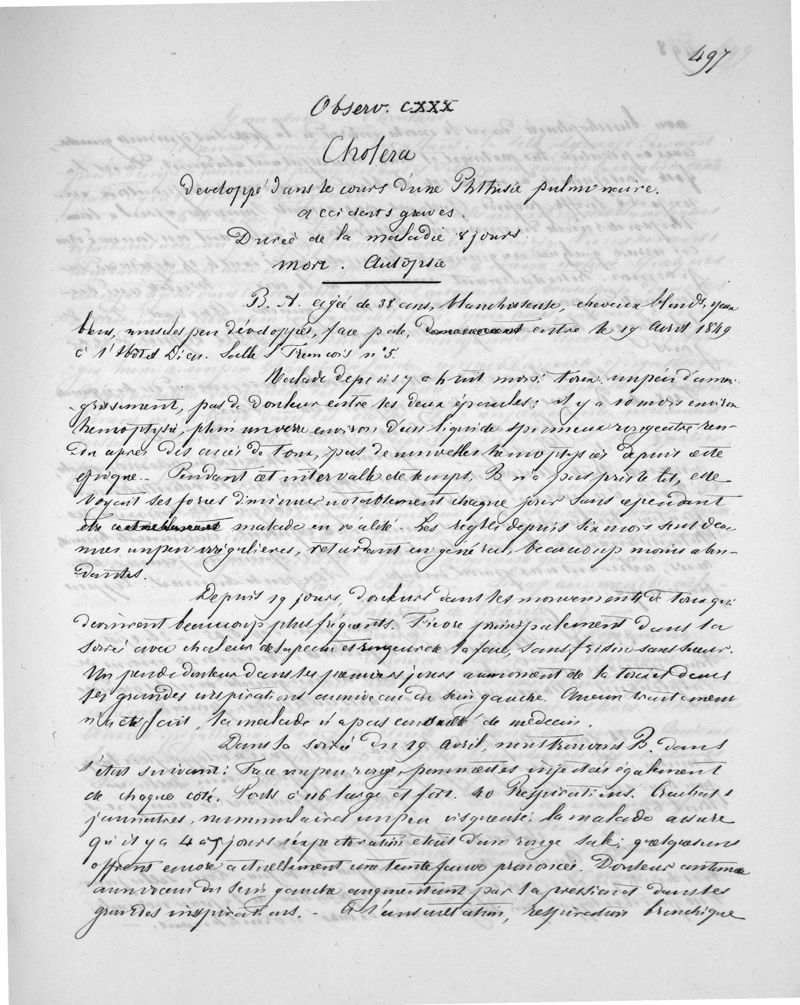 497
Observ. CXXX
Cholera
Developpé dans le cours d'une Phthisie pulmonaire.
accidents graves.
Durée de la maladie 8 jours.
Mort. Autopsie
B. A. agée de 38 ans, blanchisseuse, cheveux blonds, yeux
bleus, muscles peu développés, face pale, entre le 19 Avril 1849
à l'Hotel Dieu. Salle St François n° 5.
Malade depuis y a huit mois: toux, un peu d'amai-
grissement, pas de douleur entre les deux épaules; il y a 10 mois environ
hemoptysie, plein un verre environ d'un liquide spumeux rougeatre ren-
du après des accès de toux, pas de nouvelles hemoptysies depuis cette
époque. Pendant cet intervalle de temps, B. n'a pas pris le lit, elle
voyait ses forces diminuer notablement chaque jour sans cependant
être malade en réalité. Les règles depuis six mois sont deve-
nues un peu irrégulieres, retardant en général, beaucoup moins abon-
dantes.
Depuis 19 jours, douleurs dans les mouvements de toux qui
devinrent beaucoup plus fréquents. Fievre principalement dans la
soirée avec chaleur de la peau et rougeur de la face, sans frisson sans sueur.
Un peu de douleur dans les premiers jours au moment de la toux et dans
les grandes inspirations au niveau du sein gauche. Aucun traitement
n'a été fait, la malade n'a pas consulté de médecin.
Dans la soirée du 19 avril, nous trouvons B. dans
l'état suivant: Face un peu rouge, pommettes injectées également
de chaque coté. Pouls à 116 large et fort. 40 Respirations. Crachats
jaunatres, nummulaires un peu visqueux; la malade assure
qu'il y a 4 a 5 jours l'expectoration était d'un rouge sale; quelques uns
offrent encore actuellement une teinte fauve prononcée. Douleur
au niveau du sein gauche augmentant par la pression et dans les
grandes inspirations. A l'auscultation, respiration bronchique